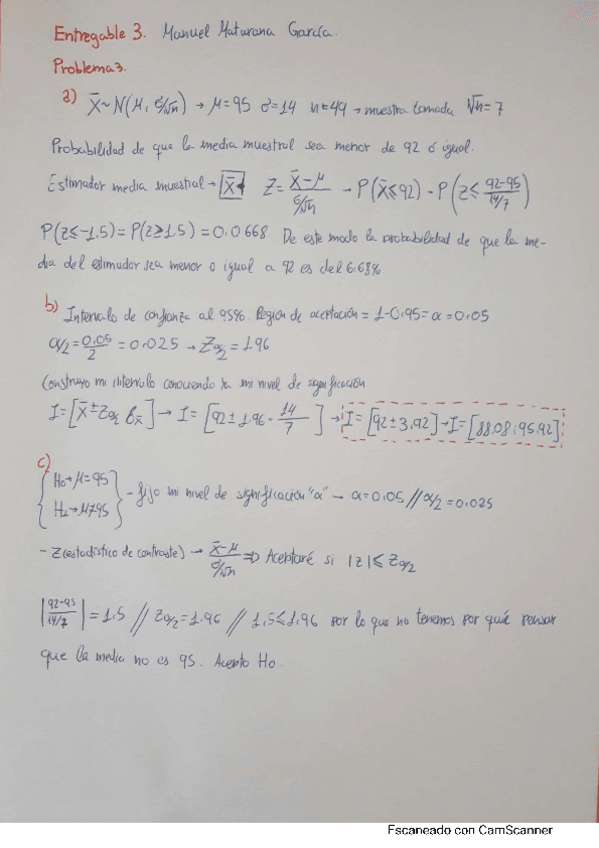 Entregable 3. Manuel Maturana García.
Problema 3.
a) X̄~N(μ, σ/√n) → μ=95 σ=14 n=49 → muestra tomada √n=7
Probabilidad de que la media muestral sea menor de 92 ó igual.
Estimador media muestral → X̄ Z = (X̄-μ)/(σ/√n) → P(X̄≤92) = P(Z≤ (92-95)/(14/7))
P(Z≤-1,5) = P(Z≥1,5) = 0.0668 De este modo la probabilidad de que la me-
dia del estimador sea menor o igual a 92 es del 6.68%
b) Intervalo de confianza al 95%. Región de aceptación = 1-0.95 = α = 0.05
α/2 = 0.05/2 = 0.025 → Zα/2 = 1.96
Construyo mi intervalo conociendo ya mi nivel de significación
I = [X̄ ± Zα/2 σx̄] → I = [92 ± 1.96 · 14/7] → I = [92 ± 3.92] → I = [88.08 ; 95.92]
c) { H₀ → μ=95
H₁ → μ≠95 } - fijo mi nivel de significación "α" → α=0.05 // α/2=0.025
- Z (estadístico de contraste) → (X̄-μ)/(σ/√n) ⇒ Aceptaré si |z| ≤ Zα/2
|(92-95)/(14/7)| = 1.5 // Zα/2 = 1.96 // 1.5≤1.96 por lo que no tenemos por qué pensar
que la media no es 95. Acepto H₀.
Escaneado con CamScanner